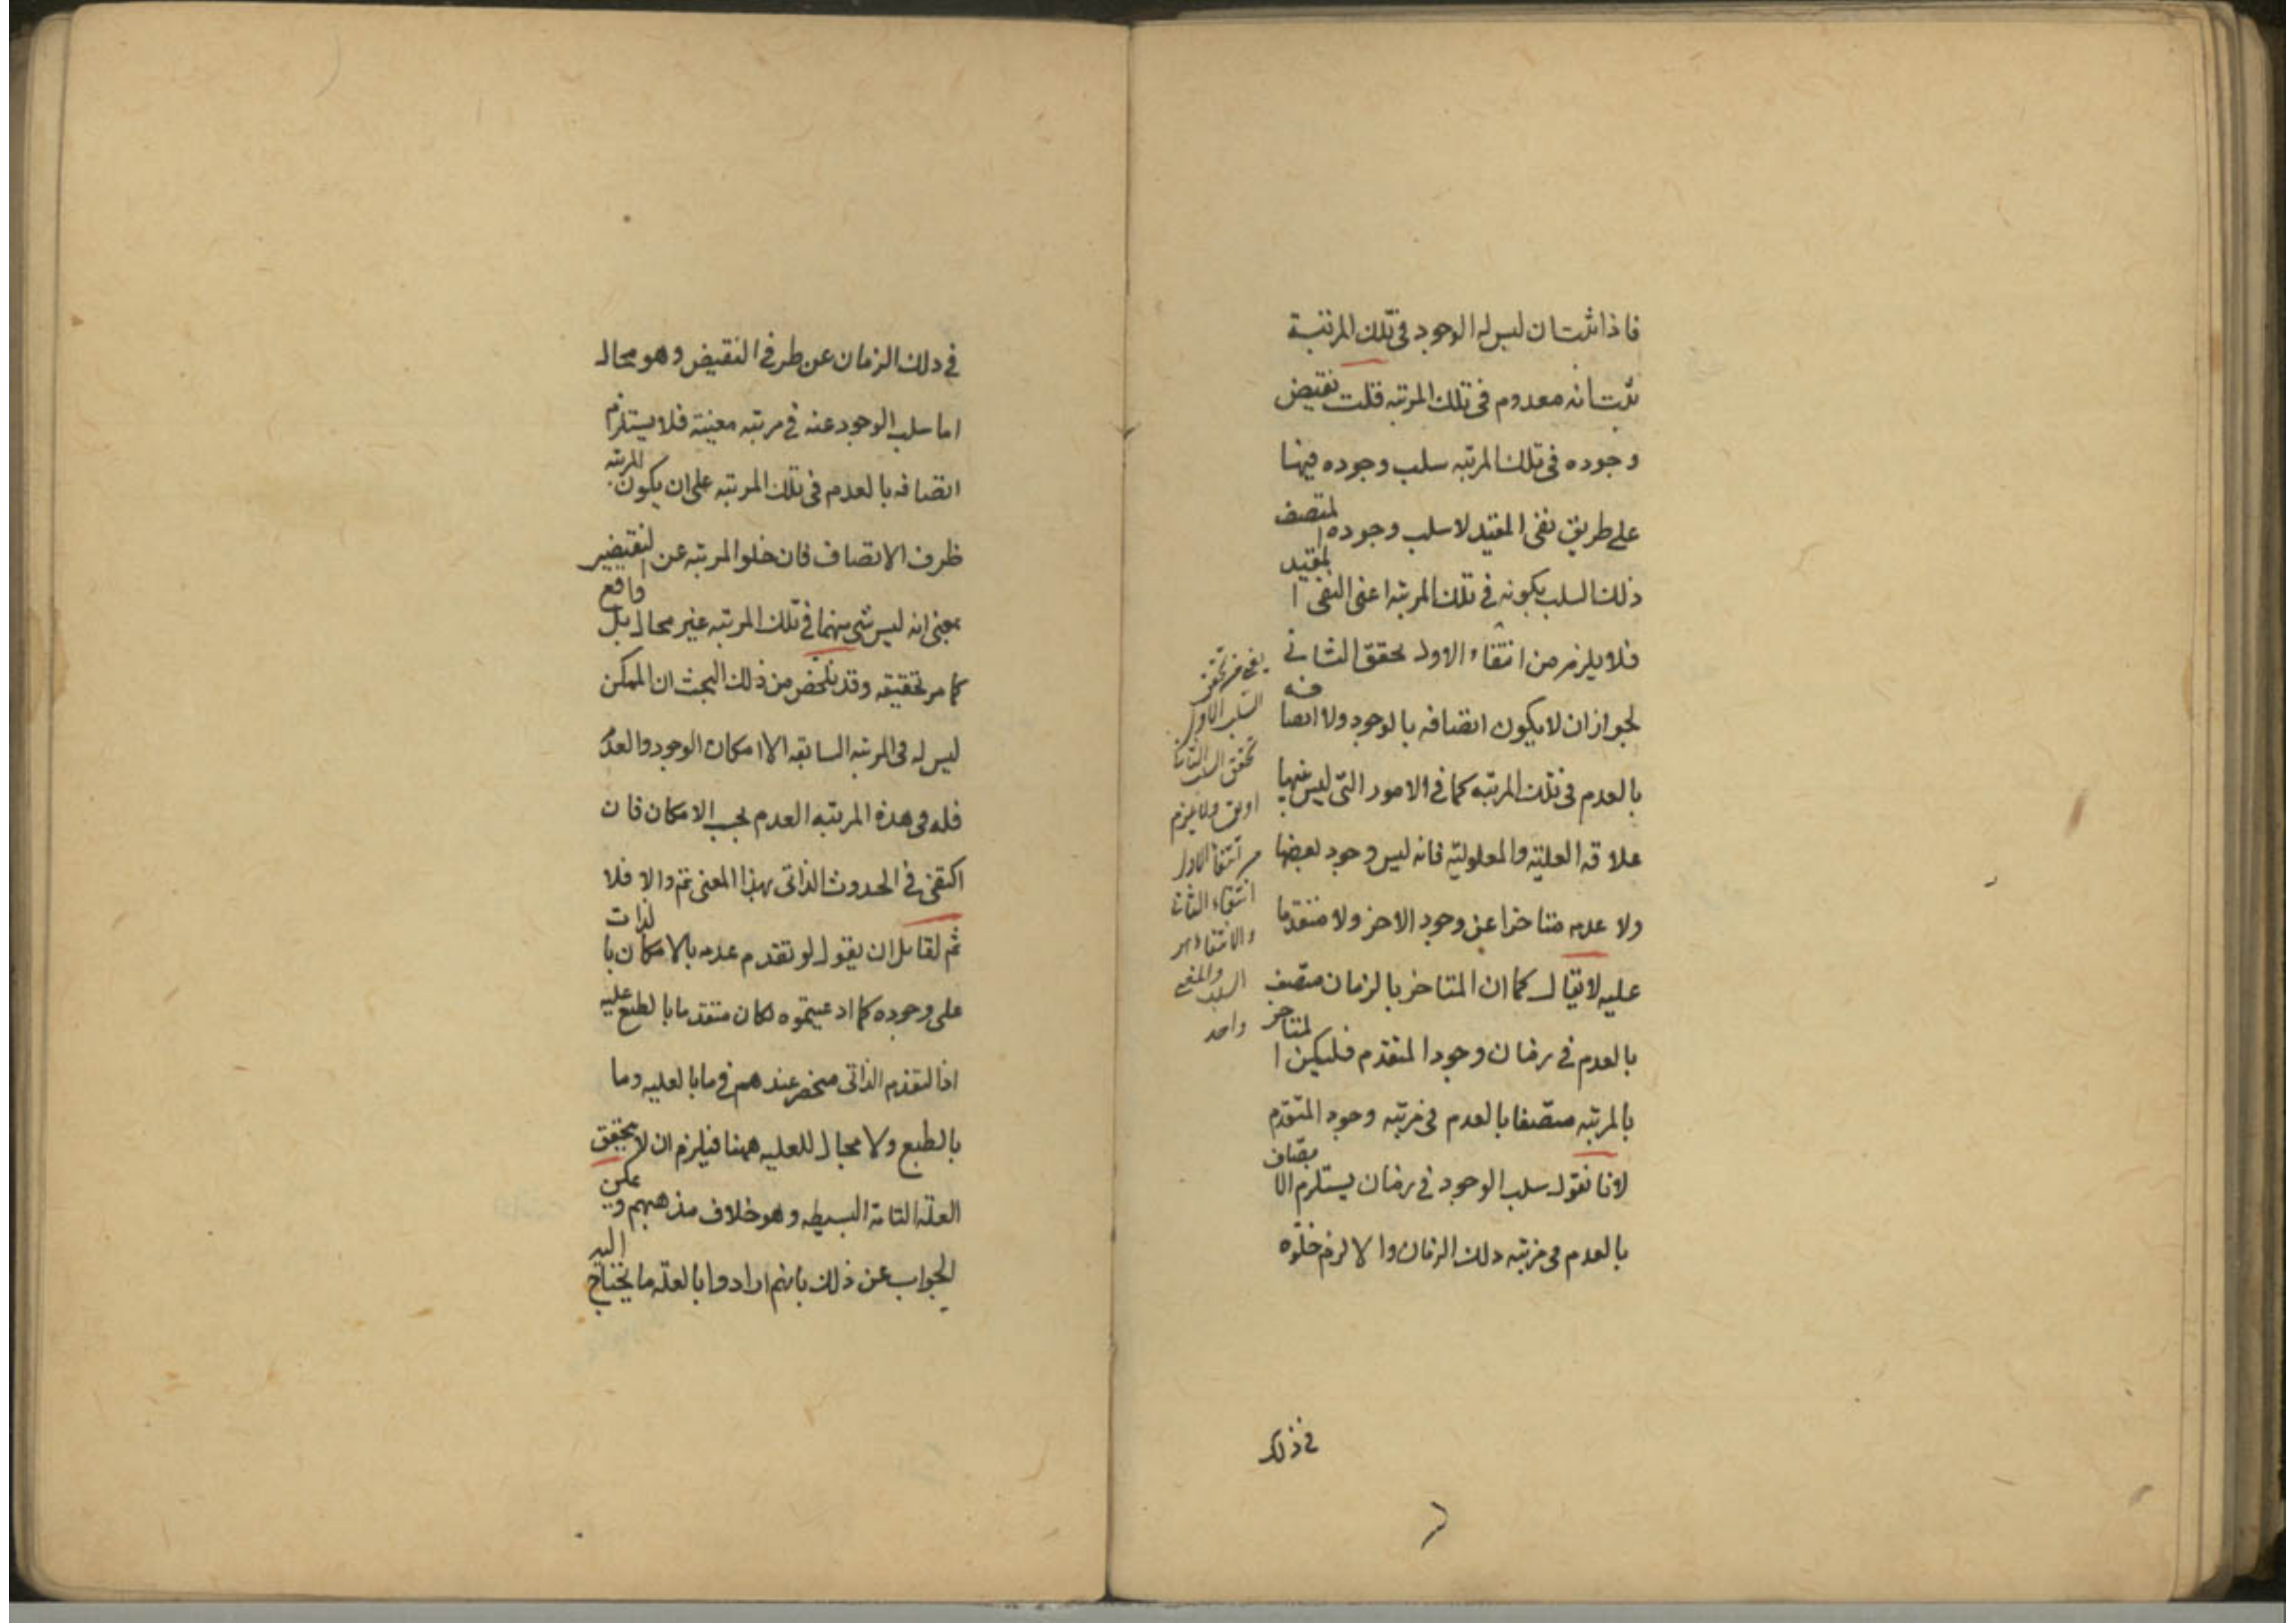 فاذا ثبت ان ليس له الوجود في تلك المرتبة
ثبت انه معدوم في تلك المرتبه قلت نقيض
وجوده في تلك المرتبه سلب وجوده فيها
على طريق نفى المقيد لا سلب وجوده المتصف
ذلك السلب بكونه في تلك المرتبه اعنى النفى المقيد
فلا يلزم من انتفاء الاول تحقق الثانى
لجواز ان لا يكون اتصافه بالوجود ولا اتصافه
بالعدم في تلك المرتبه كما في الامور التى ليس بينها
علاقه العليه والمعلوليه فانه ليس وجود بعضها
ولا عدمه متاخرا عن وجود الاخر ولا متقدما
عليه لا يقال كما ان المتاخر بالزمان متصف
بالعدم في زمان وجود المتقدم فليكن المتاخر
بالمرتبه متصفا بالعدم في مرتبه وجود المتقدم
لانا نقول سلب الوجود في زمان يستلزم الاتصاف
بالعدم في مرتبه ذلك الزمان والا لزم خلوه
تحقق
السلب الاول
تحقق السلب الثانى
ولا يلزم
من انتفاء الاول
انتفاء الثانى
والانتفاء
السلب والنفى
واحد
في ذلك
في ذلك الزمان عن طرفي النقيض وهو محال
اما سلب الوجود عنه في مرتبه معينة فلا يستلزم
اتصافه بالعدم في تلك المرتبه على ان يكون المرتبه
ظرف الاتصاف فان خلو المرتبه عن النقيضين
بمعنى انه ليس شى منهما في تلك المرتبه غير محال بل واقع
كما مر تحقيقه وقد تلخص من ذلك البحث ان الممكن
ليس له في المرتبه السابقه الا امكان الوجود والعدم
فله في هذه المرتبه العدم بحسب الامكان فان
اكتفى في الحدوث الذاتى بهذا المعنى تم والا فلا
ثم لقائل ان يقول لو تقدم عدمه بالامكان بالذات
على وجوده كما ادعيتموه لكان متقدما بالطبع عليه
اذ التقدم الذاتى منحصر عندهم في ما بالعليه وما
بالطبع ولا مجال للعليه ههنا فيلزم ان لا يتحقق
العله التامة البسيطه وهو خلاف مذهبهم ويمكن
الجواب عن ذلك بانهم ارادوا بالعله ما يحتاج اليه